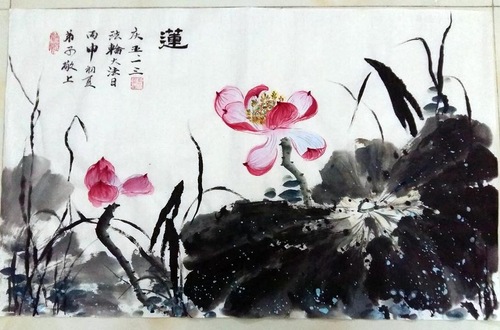 蓮
庆五·一三
法輪大法日
丙申初夏
弟子敬上